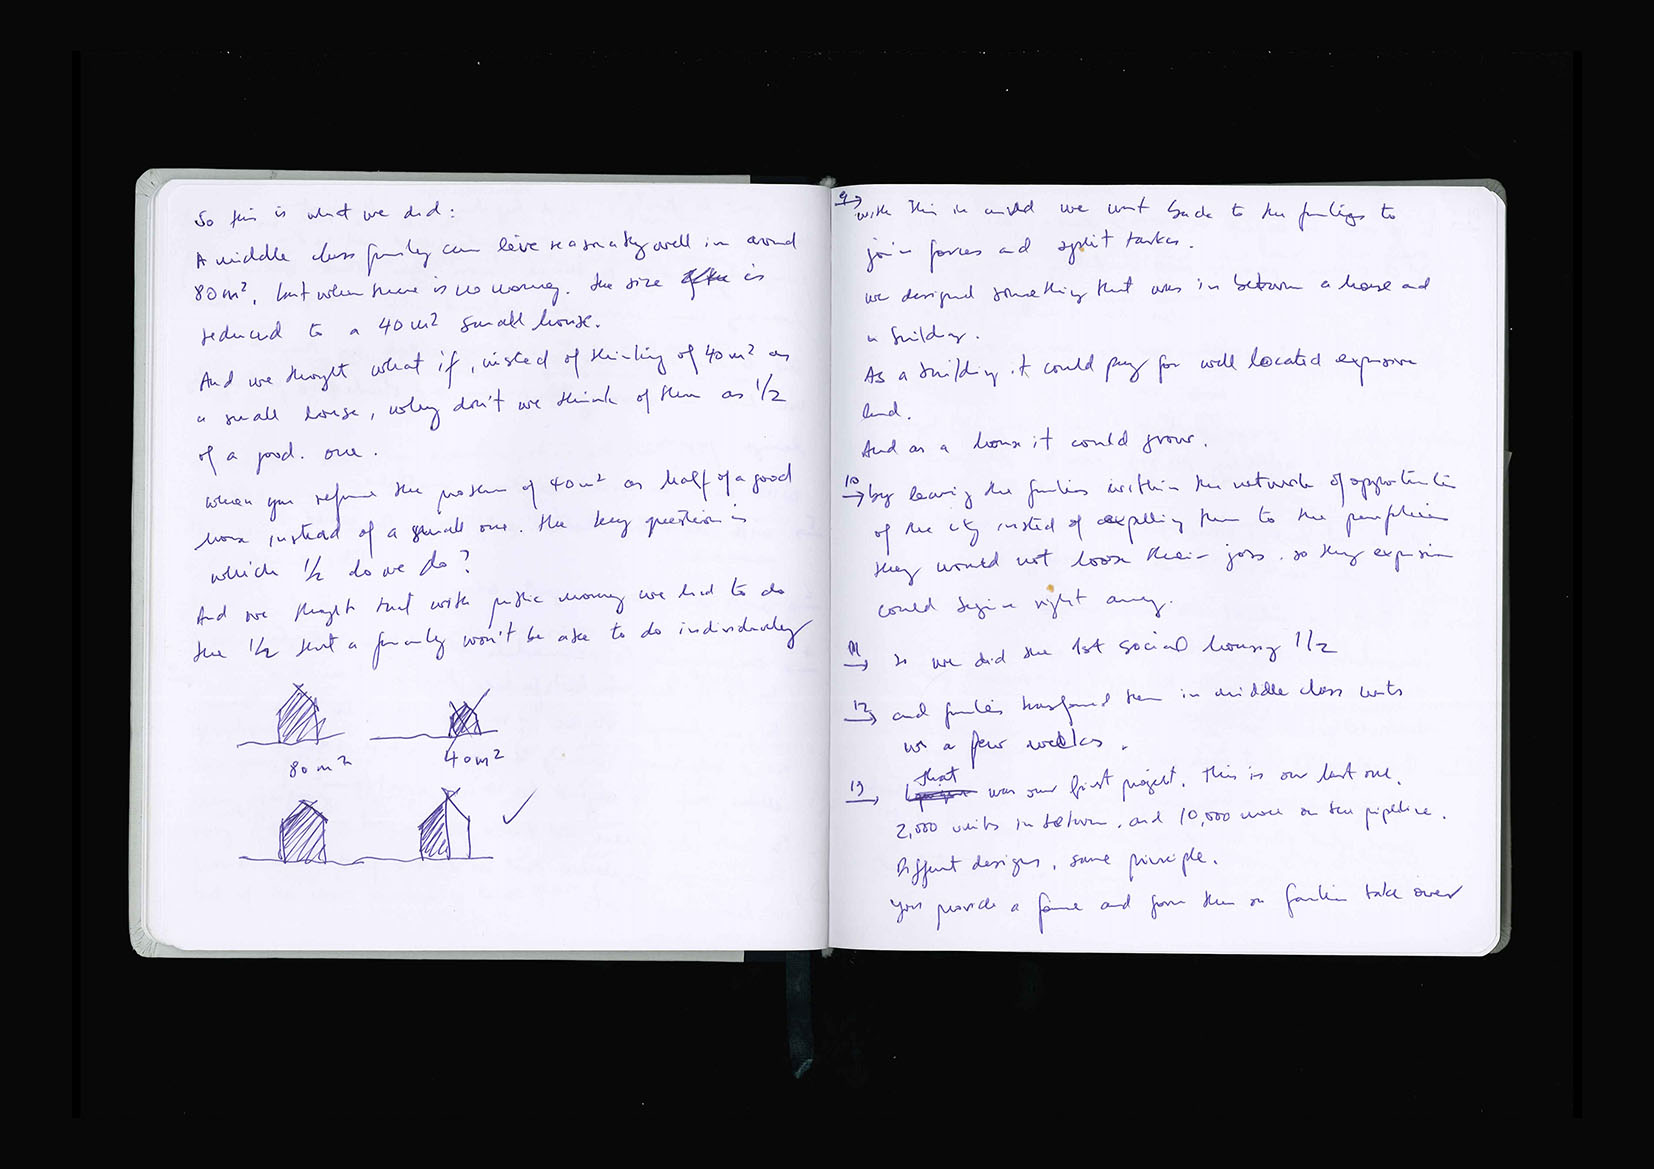 So this is what we did:
A middle class family can live reasonably well in around
80m², but when there is no money. the size is
reduced to a 40m² small house.
And we thought what if, insted of thinking of 40m² as
a small house, why don't we think of them as 1/2
of a good. one.
when you reframe the problem of 40m² as half of a good
house instead of a small one. the key question is
which 1/2 do we do?
And we thought that with public money we had to do
the 1/2 that a family won't be able to do individually
80m²
40m²
9 with this in mind we went back to the families to
join forces and split tasks.
we designed something that was in between a house and
a building.
As a building it could pay for well located expensive
land.
And as a house it could grow.
10 by leaving the families within the network of opportunities
of the city insted of expelling them to the peripheries
they would not loose their jobs. so the expansion
could begin right away.
11 so we did the 1st social housing 1/2
12 and families transformed them in middle class units
in a few weeks.
13 that was our first project. This is our last one.
2,000 units in between. and 10,000 more on the pipeline.
Different designs, same principle.
You provide a frame and from then on families take over